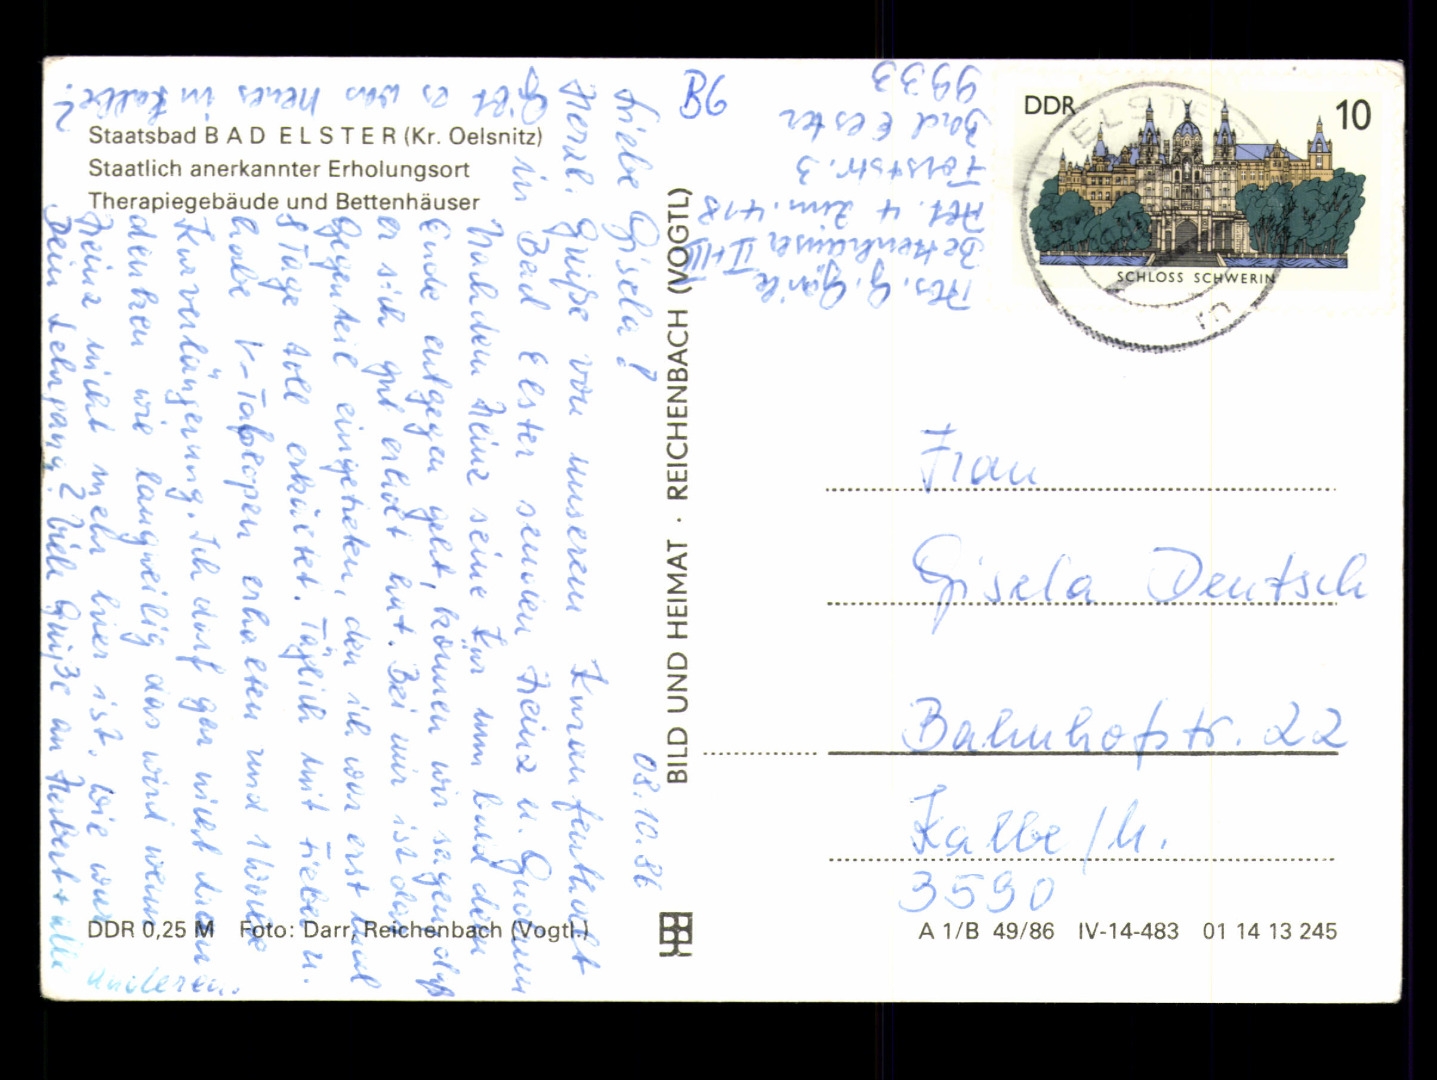 Staatsbad BAD ELSTER (Kr. Oelsnitz)
Staatlich anerkannter Erholungsort
Therapiegebäude und Bettenhäuser
08.10.86
Liebe Gisela!
Herzl. Grüße von unserem Kuraufenthalt
in Bad Elster senden Heinz u. Gudrun
Nachdem Heinz seine Kur nun bald dem
Ende entgegen geht, können wir sagen daß
er sich gut erholt hat. Bei mir ist das
Gegenteil eingetreten, da ich war erst mal
8 Tage toll erkältet. Täglich mit Fieber u.
habe V-Tabletten erhalten und 1 Woche
Kurverlängerung. Ich darf gar nicht daran
denken wie langweilig das wird wenn
Heinz nicht mehr hier ist. Wie war
Dein Lehrgang? Viele Grüße an Herbert + alle
anderen.
Gibt es was neues in Kalbe?
BILD UND HEIMAT · REICHENBACH (VOGTL)
B6
Abs. G.
Bettenhäuser II+III
Abt. 4 Zim. 418
Forststr. 3
Bad Elster
9933
DDR 10
SCHLOSS SCHWERIN
ELSTER
Frau
Gisela Deutsch
Bahnhofstr. 22
Kalbe/M.
3590
DDR 0,25 M Foto: Darr, Reichenbach (Vogtl.)
A 1/B 49/86 IV-14-483 01 14 13 245